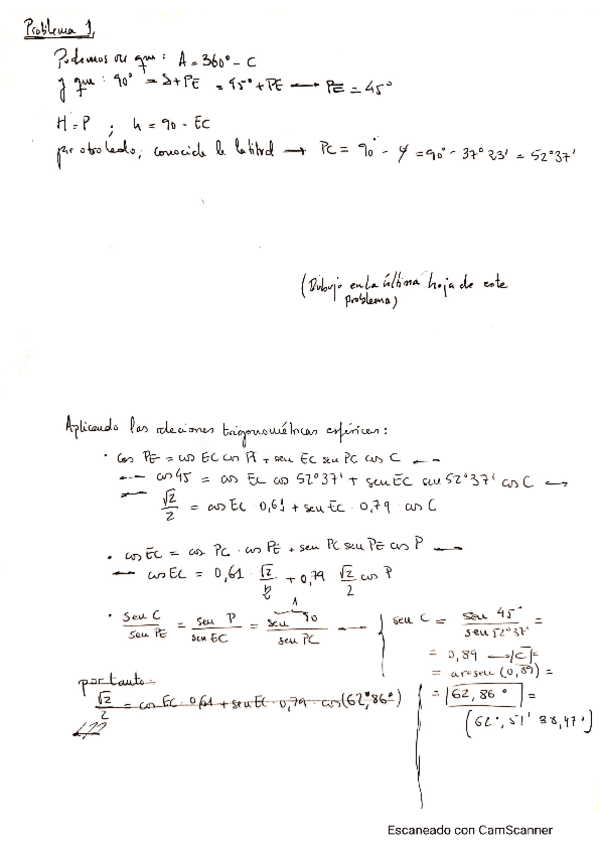 Problema 1,
Podemos ver que: A = 360° - C
y que: 90° = δ + PE = 45° + PE → PE = 45°
H = P ; h = 90 - EC
por otro lado; conocida la latitud → PC = 90° - φ = 90° - 37°23' = 52°37'
(Dibujo en la última hoja de este
problema)
Aplicando las relaciones trigonométricas esféricas:
· cos PE = cos EC cos PC + sen EC sen PC cos C →
→ cos 45 = cos EC cos 52°37' + sen EC sen 52°37' cos C →
→ √2/2 = cos EC 0,61 + sen EC · 0,79 cos C
· cos EC = cos PC · cos PE + sen PC sen PE cos P →
→ cos EC = 0,61 · √2/2 + 0,79 √2/2 cos P
· sen C / sen PE = sen P / sen EC = sen 90 / sen PC → sen C = sen 45° / sen 52°37' =
1
= 0,89 → |C| =
= arcsen (0,89) =
= 62,86° =
(62°, 51' 38,47")
por tanto:
√2/2 = cos EC · 0,61 + sen EC · 0,79 · cos (62,86°)
Escaneado con CamScanner